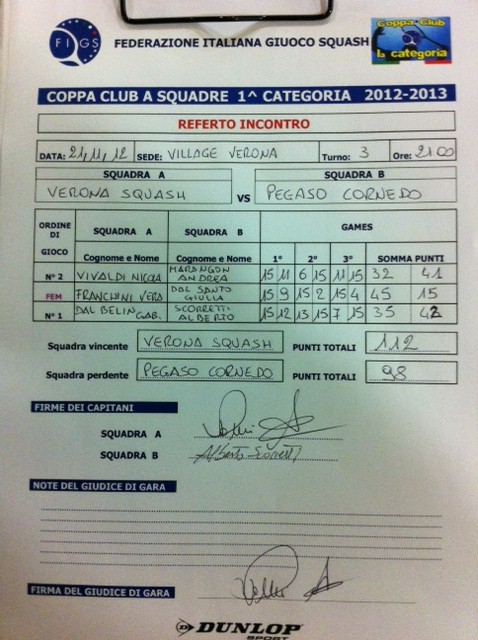 FIGS
FEDERAZIONE ITALIANA GIUOCO SQUASH
Coppa Club
1a categoria
COPPA CLUB A SQUADRE 1^ CATEGORIA 2012-2013
REFERTO INCONTRO
DATA: 21,11,12 SEDE: VILLAGE VERONA Turno: 3 Ore: 2100
SQUADRA A SQUADRA B
VERONA SQUASH VS PEGASO CORNEDO
ORDINE DI GIOCO SQUADRA A SQUADRA B GAMES
Cognome e Nome Cognome e Nome 1° 2° 3° SOMMA PUNTI
N° 2 VIVALDI NICOLA MARANGON ANDREA 15 11 6 15 11 15 32 41
FEM FRANCHINI VERA DAL SANTO GIULIA 15 9 15 2 15 4 45 15
N° 1 DAL BELIN GAB. SCORRETTI ALBERTO 15 12 13 15 7 15 35 42
Squadra vincente VERONA SQUASH PUNTI TOTALI 112
Squadra perdente PEGASO CORNEDO PUNTI TOTALI 98
FIRME DEI CAPITANI
SQUADRA A
SQUADRA B Alberto Scorretti
NOTE DEL GIUDICE DI GARA
FIRMA DEL GIUDICE DI GARA
DUNLOP
SPORT